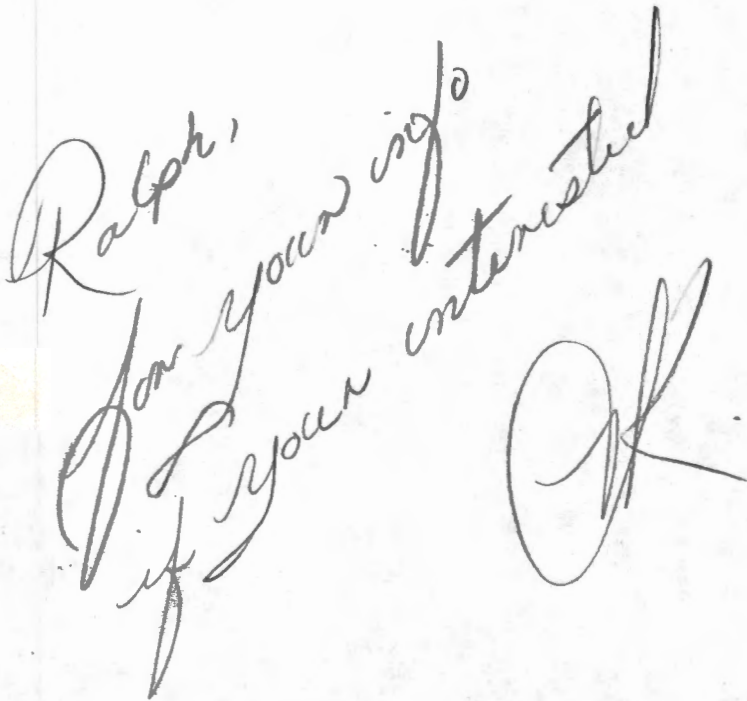 Ralph,
For your info
if your interested